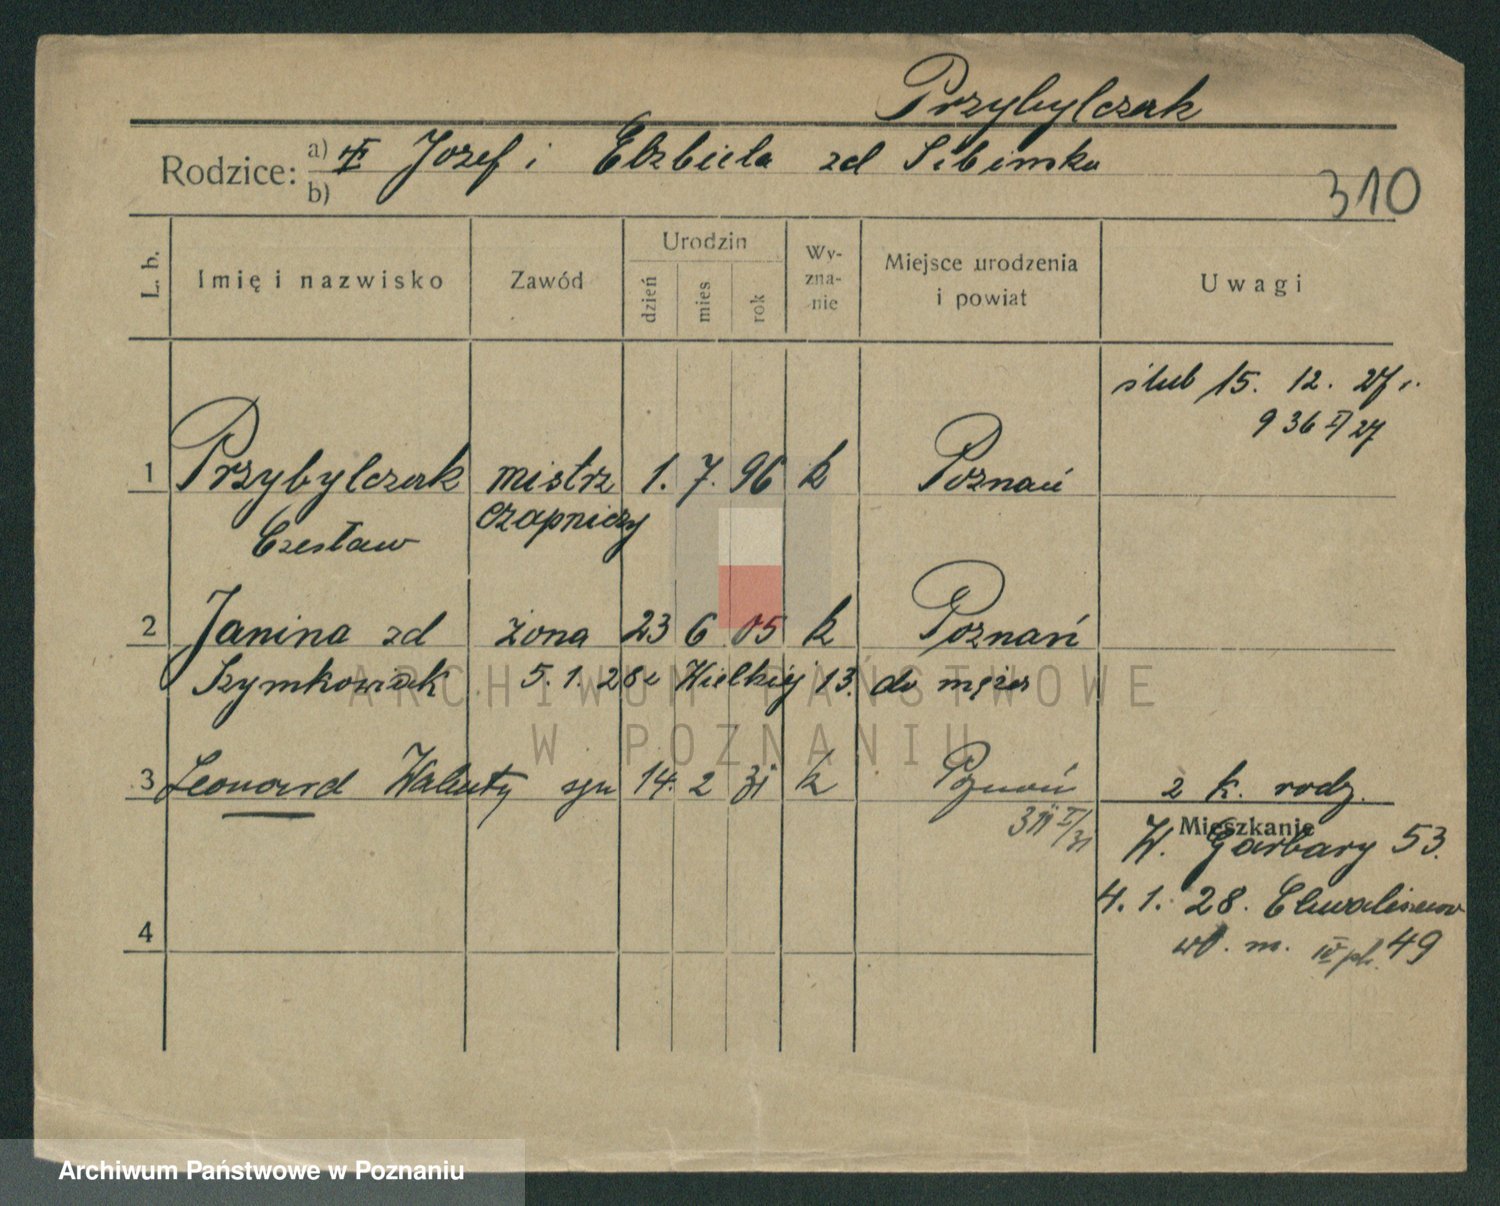 Przybylczak
Rodzice: a) Józef i Elżbieta zd Sibinska
b)
310
L. b. Imię i nazwisko Zawód Urodzin dzień mies rok Wy-zna-nie Miejsce urodzenia i powiat Uwagi
ślub 15. 12. 27 r.
936 II 27
1 Przybylczak mistrz 1. 7. 96 k Poznań
Czesław czapniczy
2 Janina zd żona 23 6 05 k Poznań
Szymkowiak 5. 1. 28 z Wielkiej 13. do męża
ARCHIWUM PAŃSTWOWE
W POZNANIU
3 Leonard Walenty syn 14. 2 31 k Poznań 2 k. rodz.
Mieszkanie
W. Garbary 53.
4. 1. 28.
4
m. IV 49
Archiwum Państwowe w Poznaniu